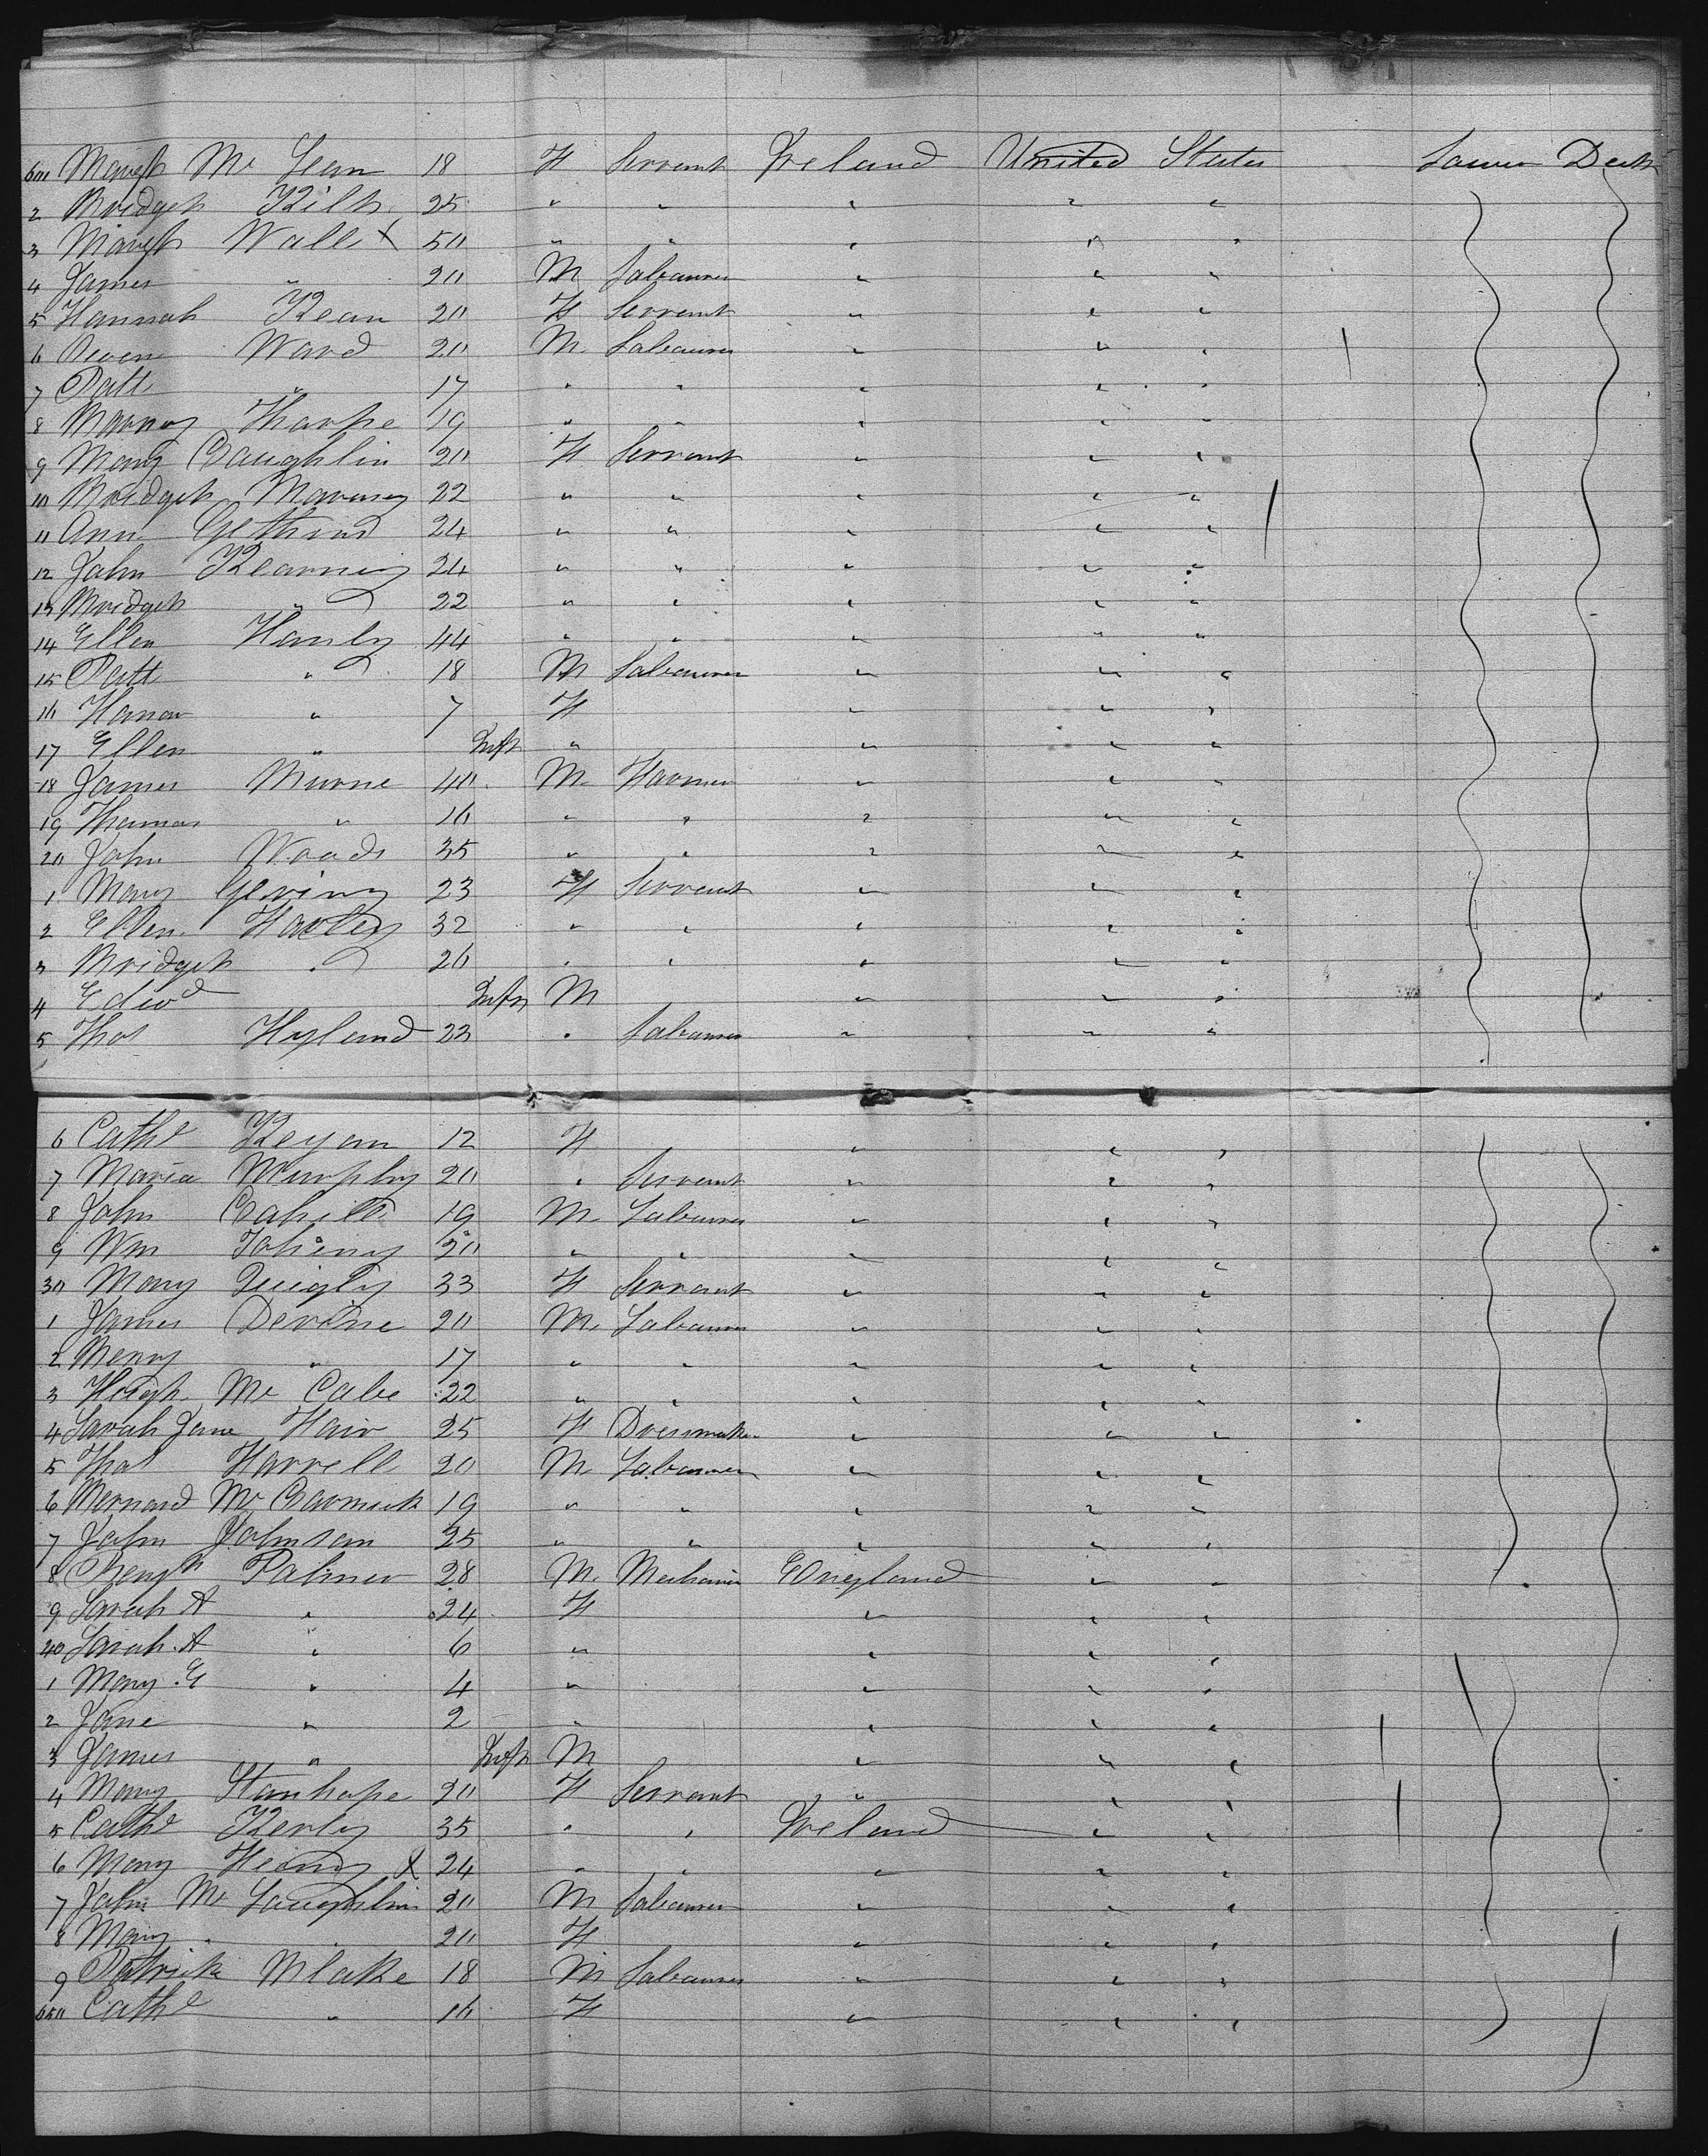 601 Margt Mc Lean 18 F Servant Ireland United States Lower Deck
2 Bridget Kilt 25 " " " " "
3 Margt Wall X 50 " " " " "
4 James " 20 M Labourer " " "
5 Hannah Kean 20 F Servant " " "
6 Ward 20 M. Labourer " " "
7 Patt " 17 " " " " "
8 Tharpe 19 " " " " "
9 Mary Caughlin 20 F Servant " " "
10 Bridget 22 " " " " "
11 Ann 24 " " " " "
12 John Kearney 24 " " " " "
13 Bridget " 22 " " " " "
14 Ellen Hanly 44 " " " " "
15 Patt " 18 M Labourer " " "
16 " 7 F " " "
17 Ellen " Inft " " " "
18 James Burne 40 M. Farmer " " "
19 Thomas " 16 " " " " "
20 John Woods 35 " " " " "
1 Mary 23 F Servant " " "
2 Ellen Harley 32 " " " " "
3 Bridget " 26 " " " " "
4 Edwd Inft M " " "
5 Thos Hyland 23 " Labourer " " "
6 Cathe Keyan 12 F " " "
7 Maria Murphy 20 " Servant " " "
8 John Cahill 19 M. Labourer " " "
9 Wm 20 " " " " "
30 Mary Quigly 33 F Servant " " "
1 James Devine 20 M. Labourer " " "
2 " 17 " " " " "
3 Hugh Mc Cabe 22 " " " " "
4 Sarah Jane Hair 25 F Dressmaker " " "
5 Thos Farrell 20 M. Labourer " " "
6 Bernard Mc Cormick 19 " " " " "
7 John Johnson 25 " " " " "
8 Palmer 28 M. Mechanic England " "
9 Sarah A " 24 F " " "
40 Sarah. A " 6 " " " "
1 Mary. E " 4 " " " "
2 Jane " 2 " " " "
3 James " Inft M " " "
4 Mary Stanhope 20 F Servant " " "
5 Cathe Kerly 35 " " Ireland " "
6 Mary X 24 " " " " "
7 John Mc Laughlin 20 M Labourer " " "
8 Mary " " 20 F " " "
9 Patrick Blake 18 M Labourer " " "
650 Cathe " 16 F " " "